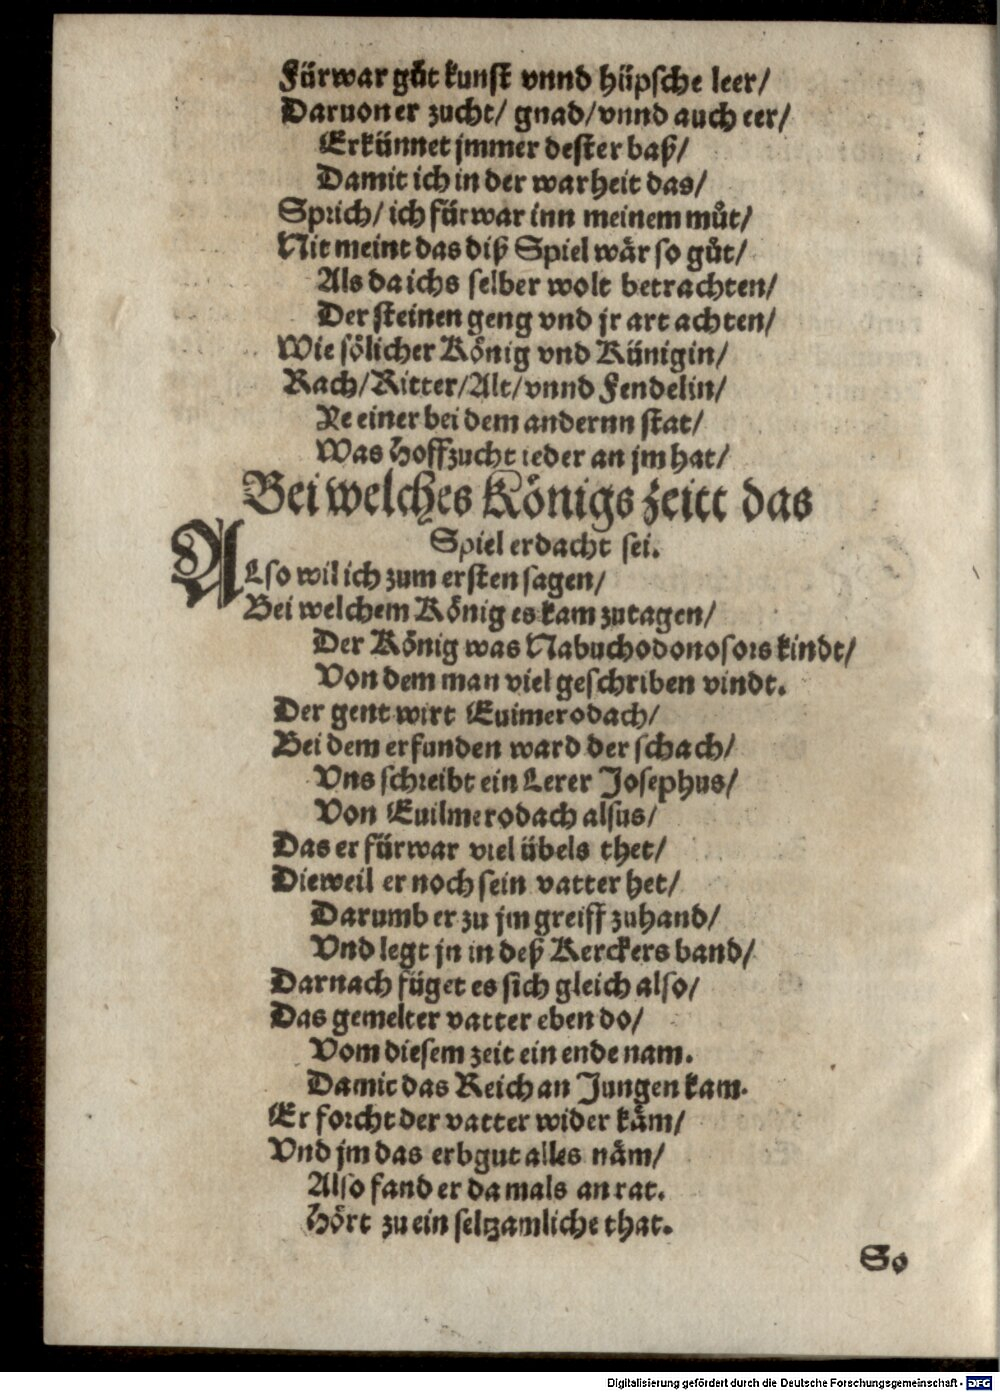 Fürwar gůt kunst vnnd hüpsche leer/
Daruon er zucht/ gnad/ vnnd auch eer/
Erkünnet jmmer dester baß/
Damit ich in der warheit das/
Sprich/ ich fürwar inn meinem můt/
Nit meint das diß Spiel wår so gůt/
Als da ichs selber wolt betrachten/
Der steinen geng vnd jr art achten/
Wie sölicher König vnd Künigin/
Rach/ Ritter/ Alt/ vnnd Fendelin/
Ye einer bei dem andernn stat/
Was Hoffzucht ieder an jm hat/
Bei welches Königs zeitt das
Spiel erdacht sei.
ALso wil ich zum ersten sagen/
Bei welchem König es kam zutagen/
Der König was Nabuchodonosors kindt/
Von dem man viel geschriben vindt.
Der gent wirt Euimerodach/
Bei dem erfunden ward der schach/
Vns schreibt ein Lerer Josephus/
Von Euilmerodach alsus/
Das er fürwar viel übels thet/
Dieweil er noch sein vatter het/
Darumb er zu jm greiff zuhand/
Vnd legt jn in deß Kerckers band/
Darnach füget es sich gleich also/
Das gemelter vatter eben do/
Vom diesem zeit ein ende nam.
Damit das Reich an Jungen kam.
Er forcht der vatter wider kåm/
Vnd jm das erbgut alles nåm/
Also fand er da mals an rat.
Hört zu ein seltzamliche that.
So
Digitalisierung gefördert durch die Deutsche Forschungsgemeinschaft - DFG